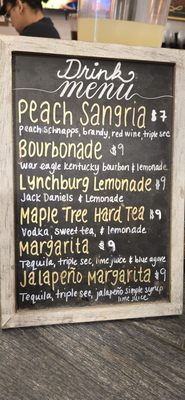 Drink
menu
Peach Sangria $7
peach schnapps, brandy, red wine, triple sec
Bourbonade $9
War eagle Kentucky bourbon & lemonade
Lynchburg Lemonade $9
Jack Daniels & Lemonade
Maple Tree Hard Tea $9
Vodka, sweet tea, & lemonade
Margarita $9
Tequila, triple sec, lime juice & blue agave
Jalapeño Margarita $9
Tequila, triple sec, jalapeño simple syrup
lime juice